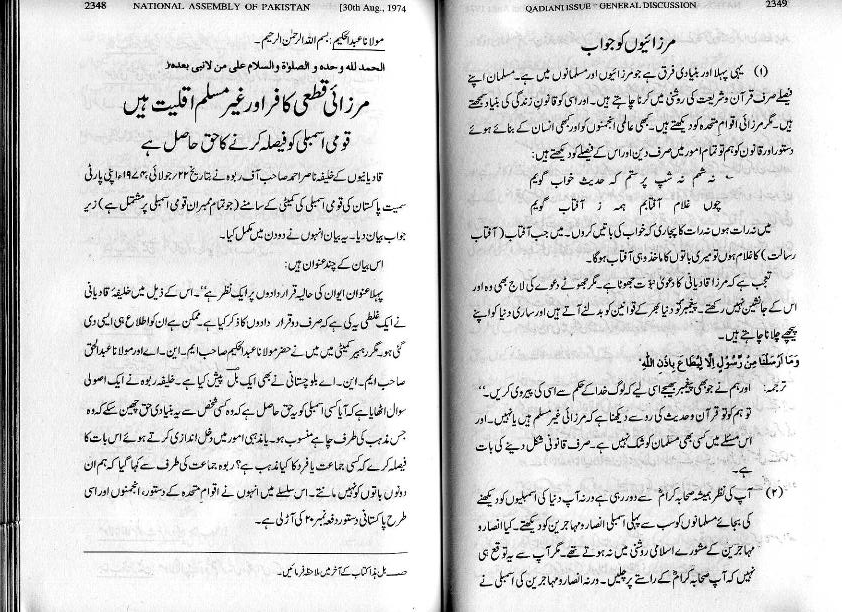 2348 NATIONAL ASSEMBLY OF PAKISTAN [30th Aug., 1974
مولانا عبدالحکیم: بسم اللہ الرحمٰن الرحیم۔
الحمد لله وحده و الصلوٰة والسلام علی من لا نبی بعده
مرزائی قطعی کافر اور غیر مسلم اقلیت ہیں
قومی اسمبلی کو فیصلہ کرنے کا حق حاصل ہے
قادیانیوں کے خلیفہ ناصر احمد صاحب آف ربوہ نے بتاریخ ۲۲؍جولائی ۱۹۷۴ء اپنی پارٹی
سمیت پاکستان کی قومی اسمبلی کی کمیٹی کے سامنے (جو تمام ممبران قومی اسمبلی پر مشتمل ہے) زیر
جواب بیان دیا۔ یہ بیان انہوں نے دو دن میں مکمل کیا۔
اس بیان کے چند عنوان ہیں:
پہلا عنوان ایوان کی حالیہ قراردادوں پر ایک نظر ہے''۔ اس کے ذیل میں خلیفہ قادیانی
نے ایک غلطی یہ کی ہے کہ صرف دو قرار دادوں کا ذکر کیا ہے۔ ممکن ہے ان کو اطلاع ہی ایسی دی
گئی ہو۔ مگر رہبر کمیٹی میں میں نے حضر مولانا عبدالحکیم صاحب ایم۔ این۔ اے اور مولانا عبدالحق
صاحب ایم۔ این۔ اے بلوچستانی نے بھی ایک بل پیش کیا ہے۔ خلیفہ ربوہ نے ایک اصولی
سوال اٹھایا ہے کہ آیا کسی اسمبلی کو یہ حق حاصل ہے کہ وہ کسی شخص سے یہ بنیادی حق چھین سکے کہ وہ
جس مذہب کی طرف چاہے منسوب ہو۔ یا مذہبی امور میں دخل اندازی کرتے ہوئے اس بات کا
فیصلہ کرے کہ کسی جماعت یا فرد کا کیا مذہب ہے؟ ربوہ جماعت کی طرف سے کہا گیا کہ ہم ان
دونوں باتوں کو نہیں مانتے۔ اس سلسلے میں انہوں نے اقوام متحدہ کے دستور، انجمنوں اور اسی
طرح پاکستانی دستور دفعہ نمبر ۲۰ کی آڑ لی ہے۔
بل ہذا کتاب کے آخر میں ملاحظہ فرمائیں۔
QADIANI ISSUE - GENERAL DISCUSSION 2349
مرزائیوں کو جواب
(۱) یہی پہلا اور بنیادی فرق ہے جو مرزائیوں اور مسلمانوں میں ہے۔ مسلمان اپنے
فیصلے صرف قرآن و شریعت کی روشنی میں کرنا چاہتے ہیں۔ اور اسی کو قانون زندگی کی بنیاد سمجھتے
ہیں۔ مگر مرزائی اقوام متحدہ کو دیکھتے ہیں۔ کبھی عالمی انجمنوں کو اور کبھی انسان کے بنائے ہوئے
دستور اور قانون کو ہم تو تمام امور میں صرف دین اور اس کے فیصلے کو دیکھتے ہیں:
نہ شم نہ شپ پرستم کہ حدیث خواب گویم
چوں غلام آفتابم ہمہ ز آفتاب گویم
میں نہ رات ہوں نہ رات کا پجاری کہ خواب کی باتیں کروں۔ میں جب آفتاب (آفتاب
رسالت) کا غلام ہوں تو میری باتوں کا ماخذ وہی آفتاب ہوگا۔
تعجب ہے کہ مرزا قادیانی کا دعویٰ نبوت جھوٹا ہے۔ مگر جھوٹے دعوے کی لاج بھی وہ اور
اس کے جانشین نہیں رکھتے۔ پیغمبر تو دنیا بھر کے قوانین کو بدلنے آتے ہیں اور ساری دنیا کو اپنے
پیچھے چلانا چاہتے ہیں۔
وَمَا اَرْسَلْنَا مِنْ رَّسُوْلٍ اِلَّا لِیُطَاعَ بِاِذْنِ اللّٰهِ'
ترجمہ: اور ہم نے جو بھی پیغمبر بھیجے اسی لیے کہ لوگ خدا کے حکم سے اسی کی پیروی کریں۔''
تو ہم کو تو قرآن و حدیث کی رو سے دیکھنا ہے کہ مرزائی غیر مسلم ہیں یا نہیں۔ اور
اس مسئلے میں کسی بھی مسلمان کو شک نہیں ہے۔ صرف قانونی شکل دینے کی بات
ہے۔
(۲) آپ کی نظر ہمیشہ صحابہ کرامؓ سے دور رہی ہے ورنہ آپ دنیا کی اسمبلیوں کو دیکھنے
کی بجائے مسلمانوں کو سب سے پہلی اسمبلی انصار و مہاجرین کو دیکھتے۔ کیا انصار و
مہاجرین کے مشورے اسلامی روشنی میں نہ ہوتے تھے۔ مگر آپ سے یہ توقع ہی
نہیں کہ آپ صحابہ کرامؓ کے راستے پر چلیں۔ ورنہ انصار و مہاجرین کی اسمبلی نے